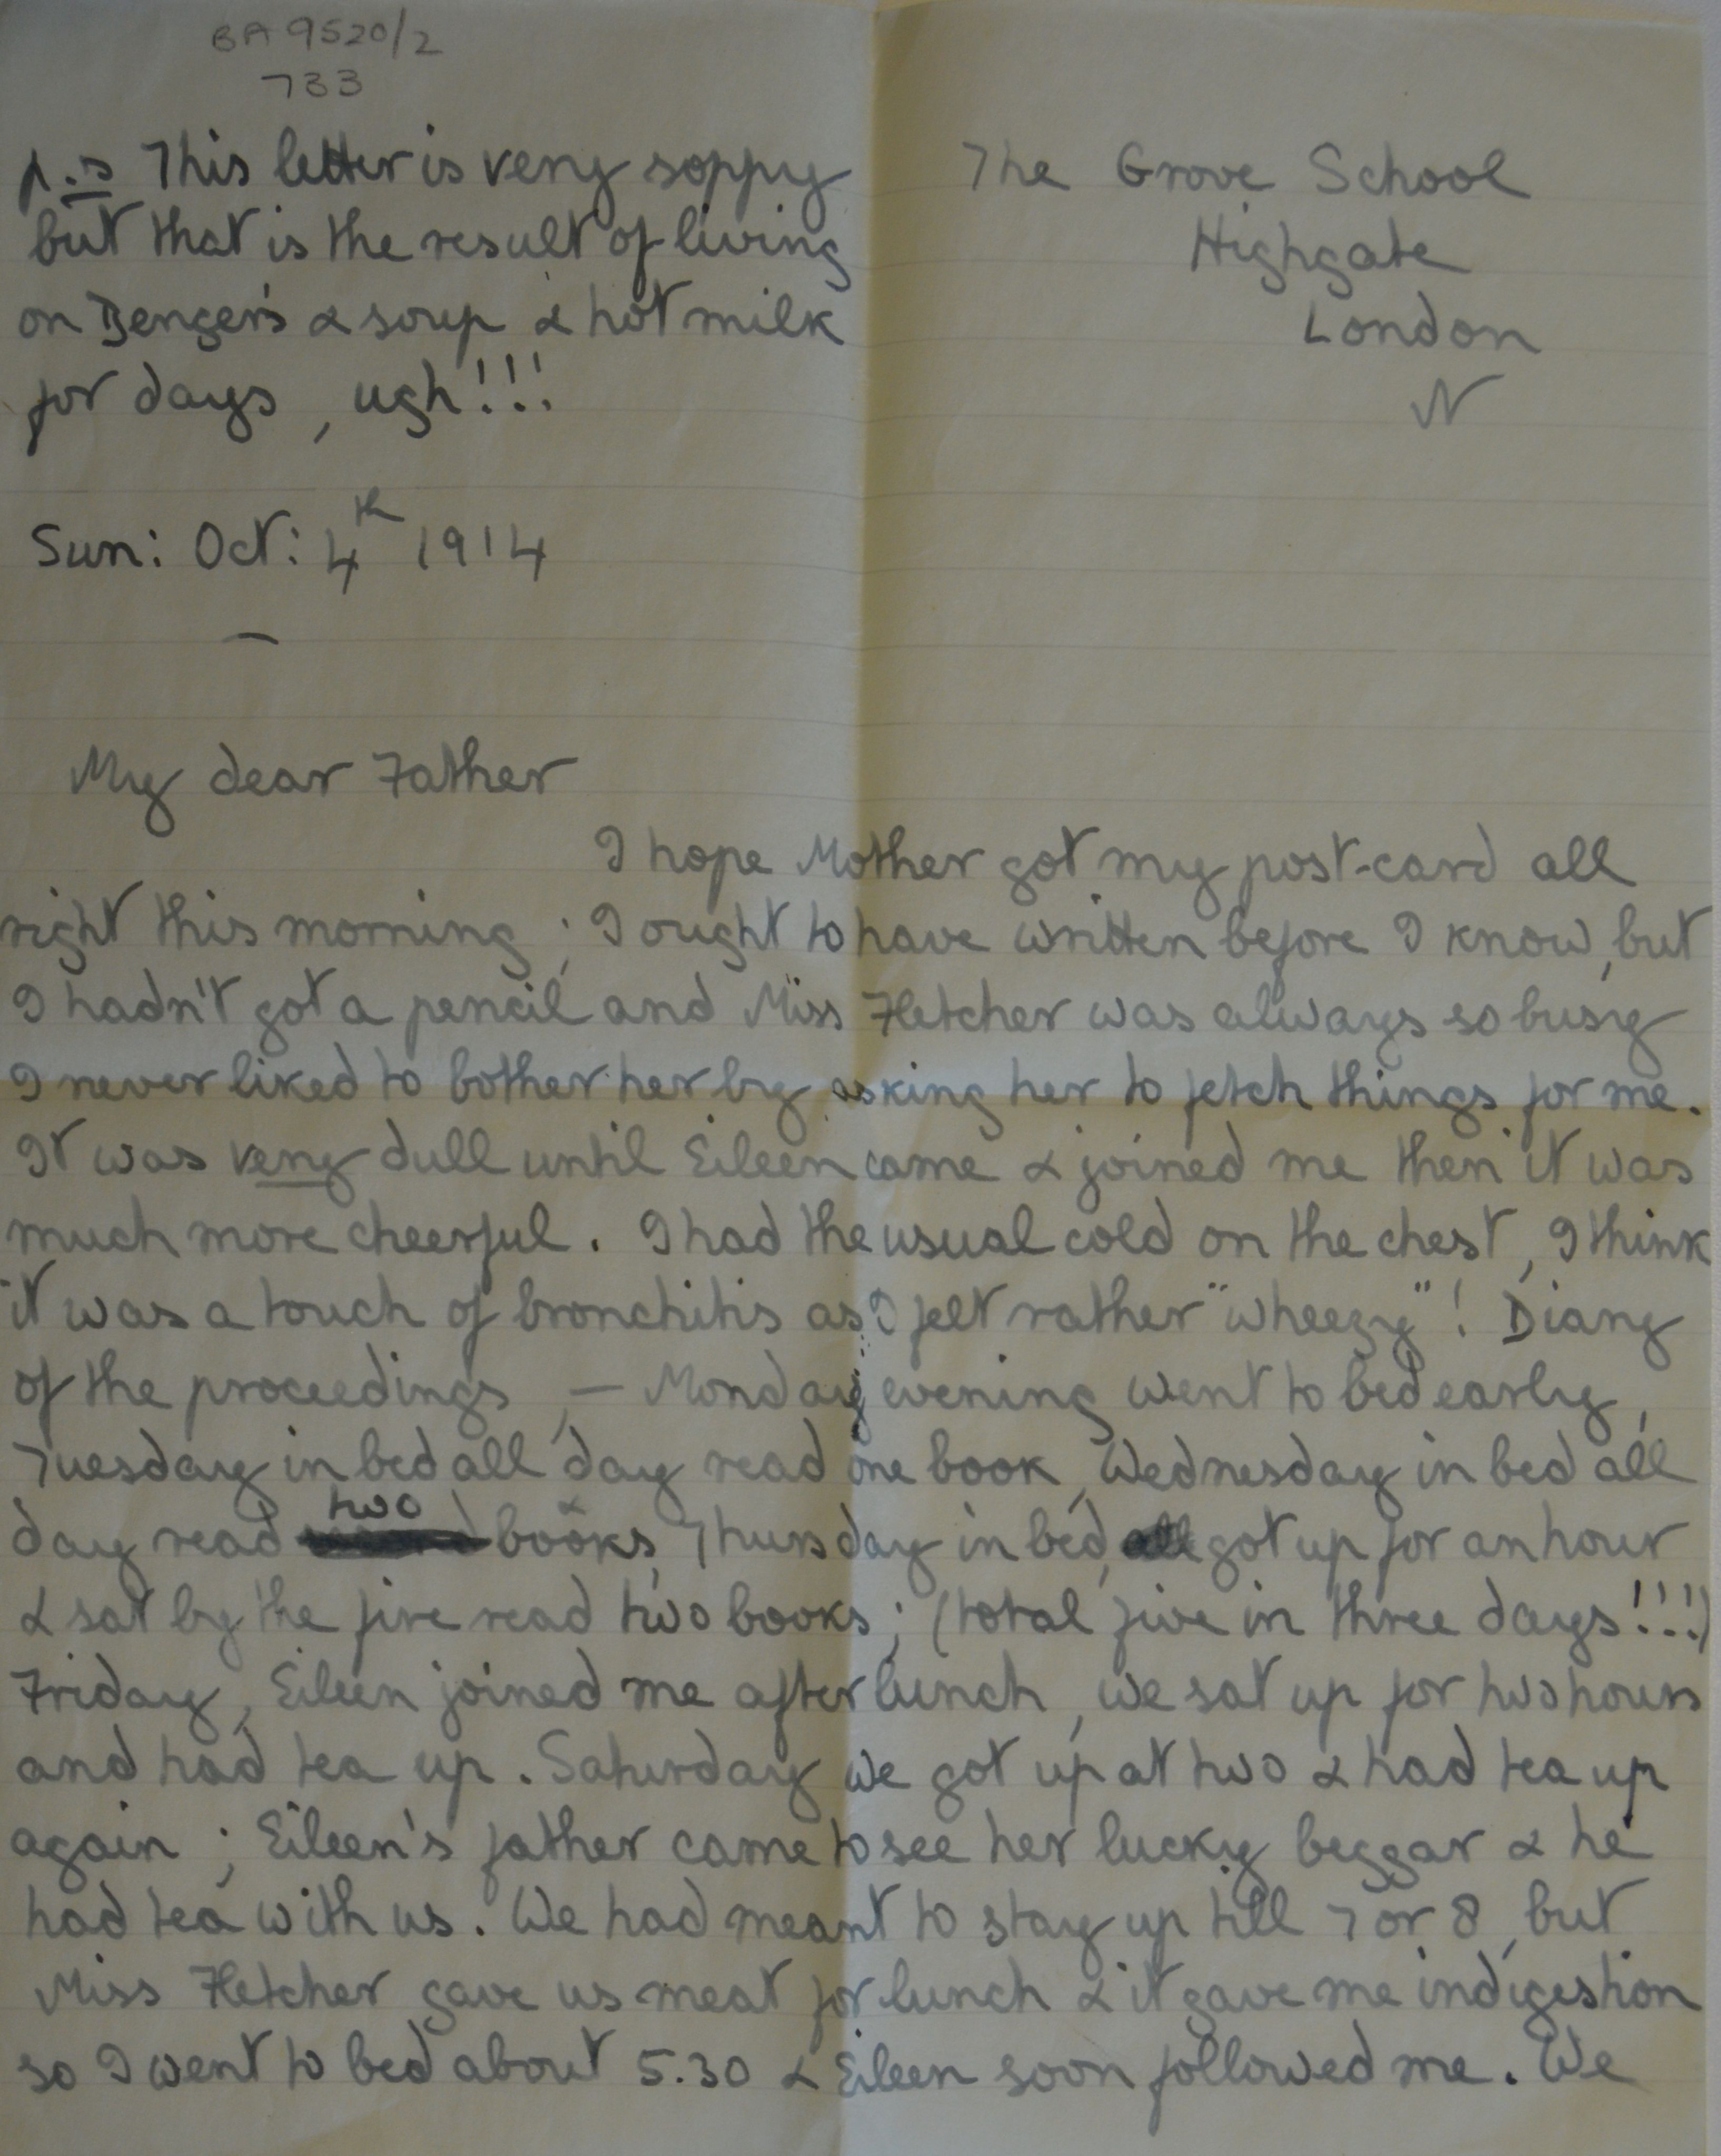 BA 9520/2
733
p.s This letter is very soppy
but that is the result of living
on Benger's & soup & hot milk
for days, ugh!!!
The Grove School
Highgate
London
N
Sun: Oct: 4th 1914
My dear Father
I hope Mother got my post-card all
right this morning; I ought to have written before I know, but
I hadn't got a pencil and Miss Fletcher was always so busy
I never liked to bother her by asking her to fetch things for me.
It was very dull until Eileen came & joined me then it was
much more cheerful. I had the usual cold on the chest, I think
it was a touch of bronchitis as I felt rather "wheezy"! Diary
of the proceedings, — Monday evening went to bed early,
Tuesday in bed all day read one book, Wednesday in bed all
day read two books, Thursday in bed, all got up for an hour
& sat by the fire read two books; (total five in three days!!!)
Friday, Eileen joined me after lunch, we sat up for two hours
and had tea up. Saturday we got up at two & had tea up
again; Eileen's father came to see her lucky beggar & he
had tea with us. We had meant to stay up till 7 or 8, but
Miss Fletcher gave us meat for lunch & it gave me indigestion
so I went to bed about 5.30 & Eileen soon followed me. We